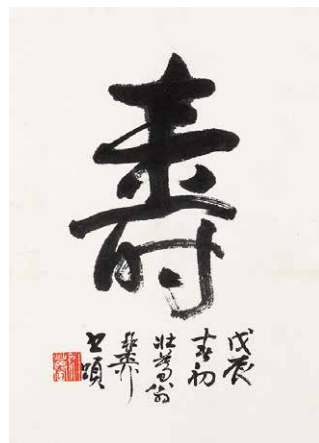 壽
戊辰
春初
壯暮翁
稚柳
書頌